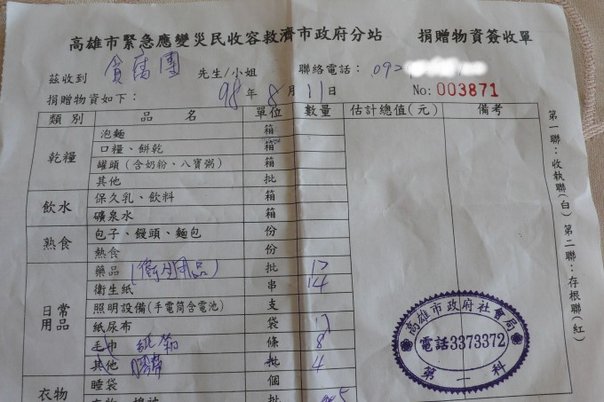 高雄市緊急應變災民收容救濟市政府分站 捐贈物資簽收單
茲收到 貪腐團 先生/小姐 聯絡電話：092
捐贈物資如下： 98年8月11日 No: 003871
類別 品名 單位 數量 估計總值(元) 備考
乾糧 泡麵 箱
口糧、餅乾 箱
罐頭(含奶粉、八寶粥) 箱
其他 批
飲水 保久乳、飲料 箱
礦泉水 箱
熟食 包子、饅頭、麵包 份
熱食 份
日常用品 藥品(衛生用品) 批 12
衛生紙 串 14
照明設備(手電筒含電池) 支
紙尿布 袋 12
毛巾 條 8
其他 批 4
衣物 睡袋 個
批
第一聯：收執聯(白) 第二聯：存根聯(紅)
高雄市政府社會局
電話3373372
第一科